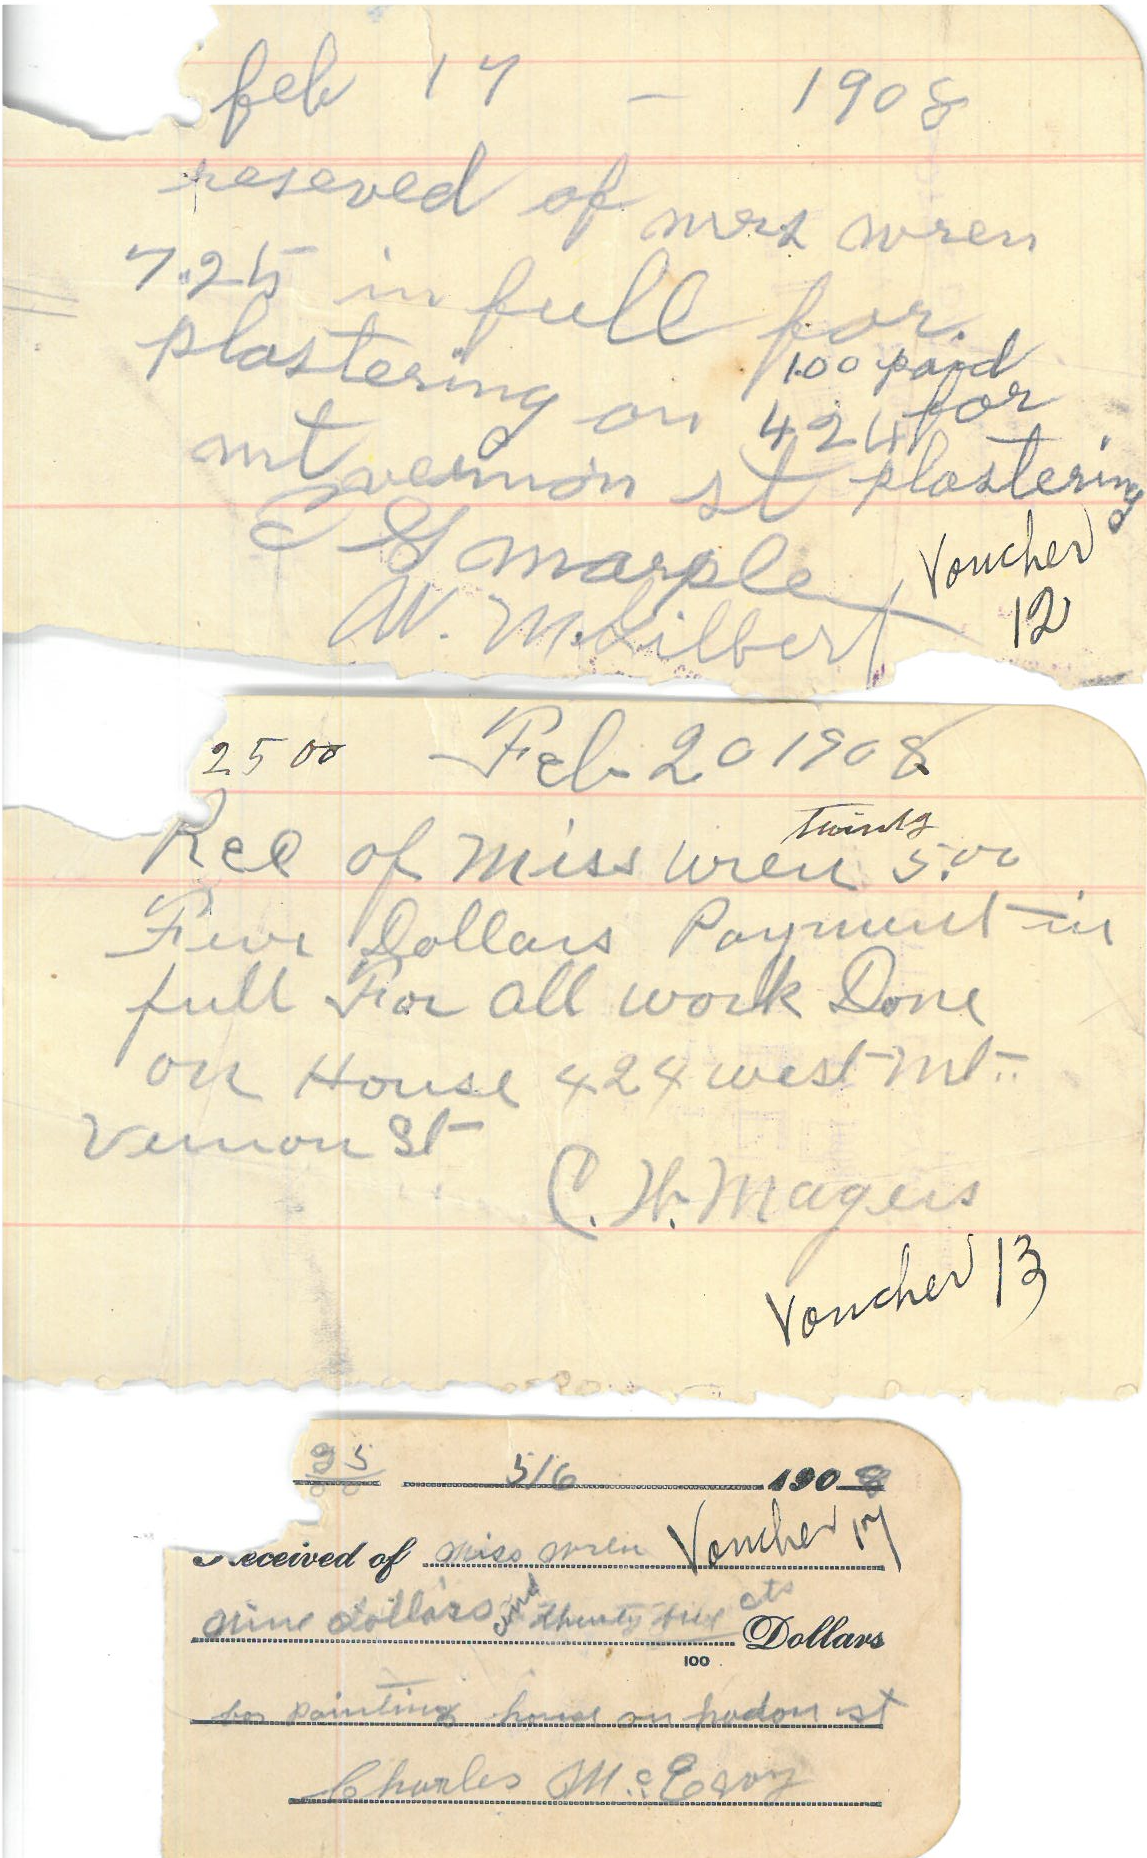 feb 17 – 1908
reseved of mrs wren
7.25 in full for.
plastering on 424
mt vernon st
1.00 paid
for
plastering
E G Marple
W. M. Gilbert
Voucher
12
25 00 Feb 20 1908
twenty
Rec of Miss Wren 5.00
Five Dollars Payment in
full For all work Done
on House 424 west Mt.
Vernon St
C. H. Magers
Voucher 13
5/6 1908
Received of miss wren Voucher 17
nine dollars and thirty cts Dollars
100
for painting house on st
Charles McEvoy